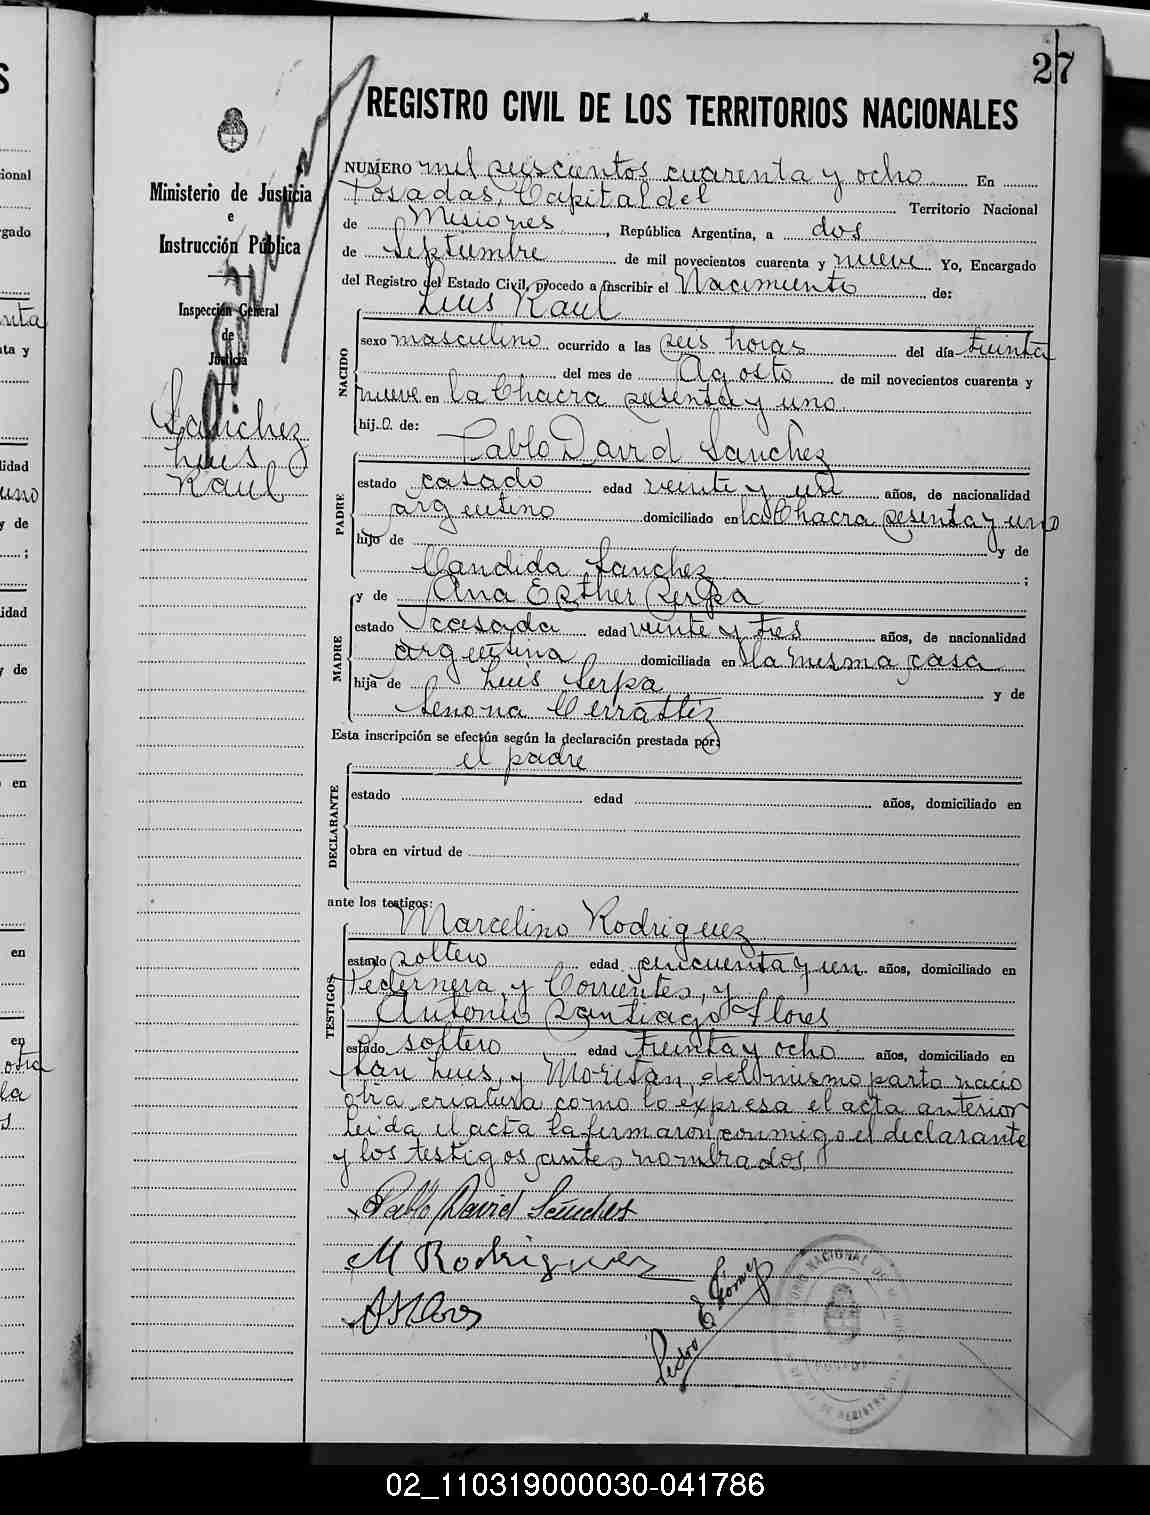 27
REGISTRO CIVIL DE LOS TERRITORIOS NACIONALES
Ministerio de Justicia
e
Instrucción Pública
Inspección General
de
Justicia
Sanchez
Luis
Raul
NUMERO mil seiscientos cuarenta y ocho En
Posadas, Capital del Territorio Nacional
de Misiones, República Argentina, a dos
de Septiembre de mil novecientos cuarenta y nueve Yo, Encargado
del Registro del Estado Civil, procedo a inscribir el Nacimiento de:
NACIDO
Luis Raul
sexo masculino ocurrido a las seis horas del día treinta
del mes de Agosto de mil novecientos cuarenta y
nueve en la Chacra sesenta y uno
hij o de:
PADRE
Pablo David Sanchez
estado casado edad veinte y un años, de nacionalidad
argentino domiciliado en la Chacra sesenta y uno
hijo de y de
Candida Sanchez ;
MADRE
y de Ana Esther Serpa
estado casada edad veinte y tres años, de nacionalidad
argentina domiciliada en la misma casa
hija de Luis Serpa y de
Senona
Esta inscripción se efectúa según la declaración prestada por:
DECLARANTE
el padre
estado edad años, domiciliado en
obra en virtud de
ante los testigos:
TESTIGOS
Marcelino Rodriguez
estado soltero edad cincuenta y un años, domiciliado en
Pedernera y Corrientes, y
Antonio Santiago Flores
estado soltero edad treinta y ocho años, domiciliado en
San Luis, y del mismo parto nacio
otra criatura como lo expresa el acta anterior
Leida el acta la firmaron conmigo el declarante
y los testigos antes nombrados
Pablo David Sanches
M Rodriguez
Pedro E
02_110319000030-041786